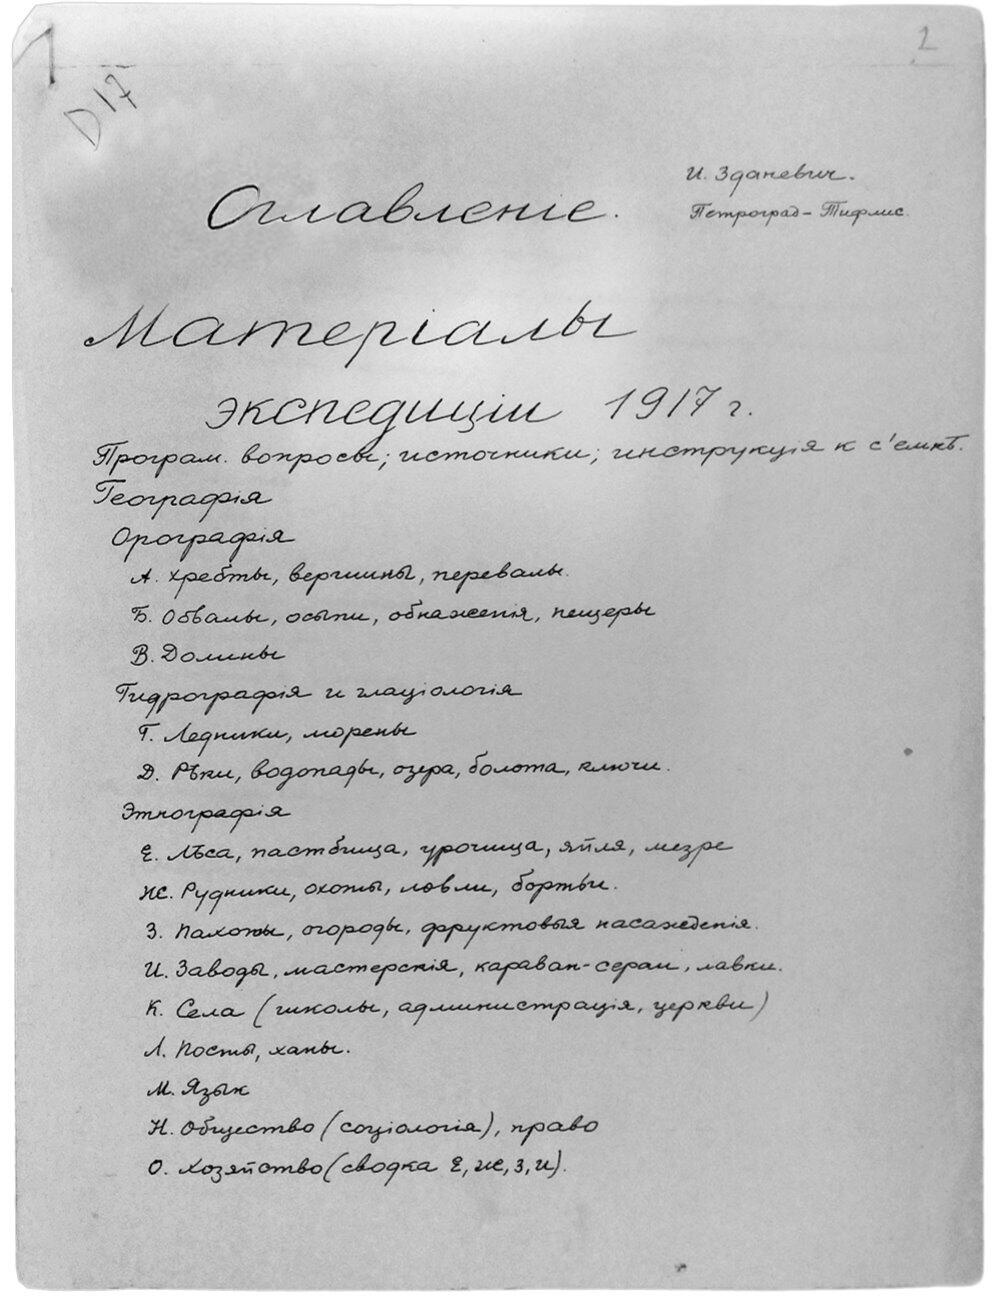 2
D17
И. Зданевич.
Петроград - Тифлис.
Оглавленіе.
Матеріалы
экспедиціи 1917 г.
Програм. вопросы; источники; инструкція к с'емкѣ.
Географія
Орографія
А. Хребты, вершины, перевалы.
Б. Обвалы, осыпи, обнаженія, пещеры
В. Долины
Гидрографія и глаціологія
Г. Ледники, морены
Д. Рѣки, водопады, озера, болота, ключи.
Этнографія
Е. Лѣса, пастбища, урочища, яйля, мезре
Ж. Рудники, охоты, ловли, бортьи.
З. Пахоты, огороды, фруктовыя насажденія.
И. Заводы, мастерскія, караван-сераи, лавки.
К. Села (школы, администрація, церкви)
Л. Посты, ханы.
М. Язык
Н. Общество (соціологія), право
О. Хозяйство (сводка Е, Ж, З, И).